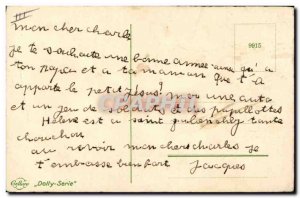 III
9915
mon cher charles
je te souhaite une bonne année ainsi qu'a
ton papa et a ta maman que t'a
apporte le petit jesus? moi une auto
et un jeu de soldats et des papillottes
Hélène est a saint julon chez tante
chouchou
au revoir mon cher charles je
t'embrasse bien fort Jacques
"Dolly-Serie"